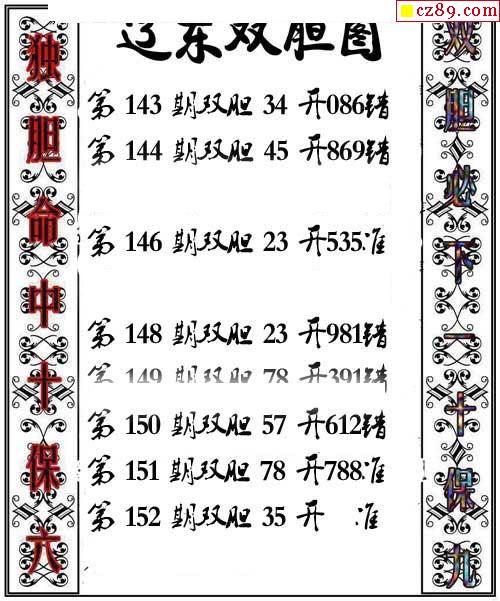 cz89.com
辽东双胆图
独胆命中十保六
第 143 期双胆 34 开086错
第 144 期双胆 45 开869错
第 146 期双胆 23 开535准
第 148 期双胆 23 开981错
第 149 期双胆 78 开391错
第 150 期双胆 57 开612错
第 151 期双胆 78 开788准
第 152 期双胆 35 开 准
双胆必下一十保九